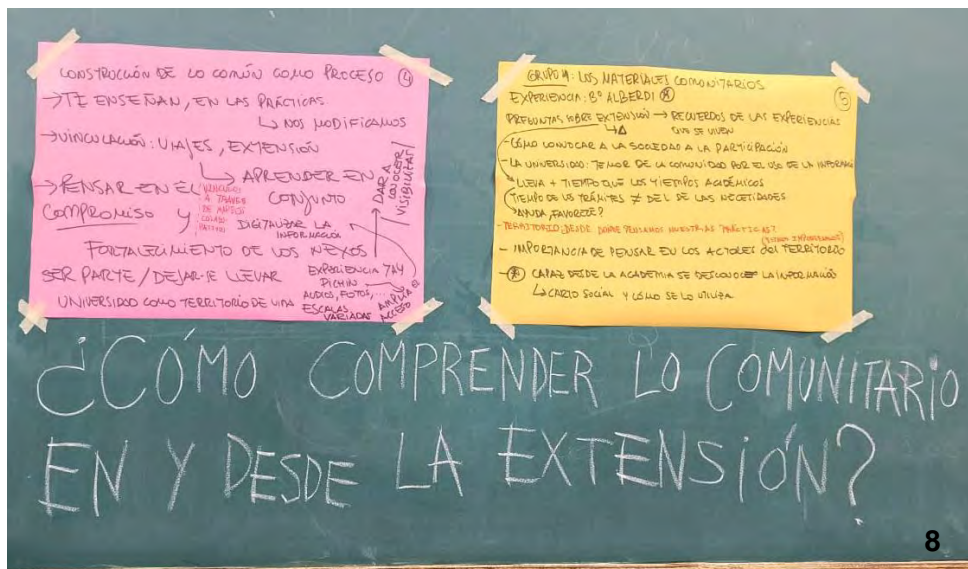 CONSTRUCCIÓN DE LO COMÚN COMO PROCESO 4
→ TE ENSEÑAN, EN LAS PRÁCTICAS
↳ NOS MODIFICAMOS
→ VINCULACIÓN: VIAJES, EXTENSIÓN
↳ APRENDER EN CONJUNTO
→ PENSAR EN EL COMPROMISO Y
VÍNCULOS A TRAVÉS DE
DIGITALIZAR LA INFORMACIÓN
→ DAR A CONOCER
VISIBILIZAR
FORTALECIMIENTO DE LOS NEXOS
SER PARTE / DEJAR-SE LLEVAR
UNIVERSIDAD COMO TERRITORIO DE VIDA
EXPERIENCIA
PICHIN
AUDIOS, FOTOS,...
ESCALAS VARIADAS
AMPLIA
ACCESO
GRUPO 4: LOS MATERIALES COMUNITARIOS
5
EXPERIENCIA: Bº ALBERDI
PREGUNTAS SOBRE EXTENSIÓN → RECUERDOS DE LAS EXPERIENCIAS
QUE SE VIVEN
- CÓMO CONVOCAR A LA SOCIEDAD A LA PARTICIPACIÓN
- LA UNIVERSIDAD: TEMOR DE LA COMUNIDAD POR EL USO DE LA INFORMACIÓN
LLEVA + TIEMPO QUE LOS TIEMPOS ACADÉMICOS
TIEMPO DE LOS TRÁMITES ≠ DEL DE LAS NECESIDADES
↳ AYUDA, FAVORECE?
- TERRITORIO DESDE DONDE PENSAMOS NUESTRAS "PRÁCTICAS?
- IMPORTANCIA DE PENSAR EN LOS ACTORES DEL TERRITORIO
- CAPAZ DESDE LA ACADEMIA SE DESCONOCE LA INFORMACIÓN
↳ CARTO SOCIAL Y CÓMO SE LO UTILIZA
¿CÓMO COMPRENDER LO COMUNITARIO
EN Y DESDE LA EXTENSIÓN?
8